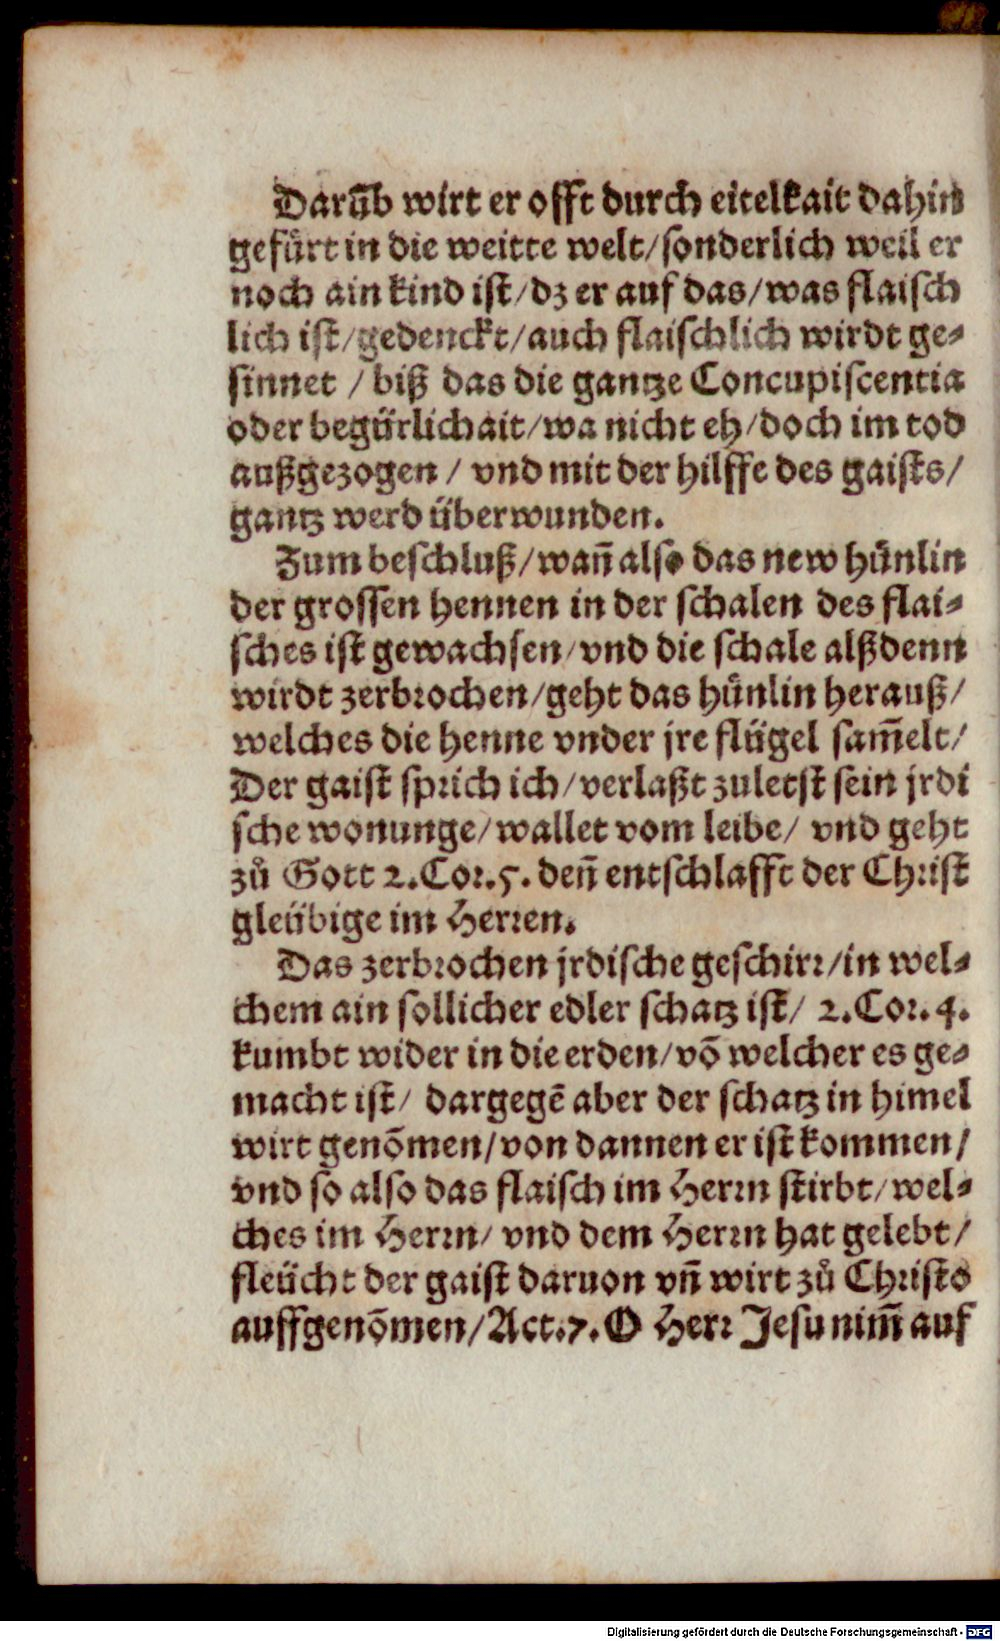 Darūb wirt er offt durch eitelkait dahin
gefuͤrt in die weitte welt/sonderlich weil er
noch ain kind ist/dz er auf das/was flaisch
lich ist/gedenckt/auch flaischlich wirdt ge-
sinnet / biß das die gantze Concupiscentia
oder beguͤrlichait/wa nicht eh/doch im tod
außgezogen / vnd mit der hilffe des gaists/
gantz werd überwunden.
Zum beschluß/wañ also das new huͤnlin
der grossen hennen in der schalen des flai-
sches ist gewachsen/vnd die schale alßdenn
wirdt zerbrochen/geht das huͤnlin herauß/
welches die henne vnder jre fluͤgel sam̄elt/
Der gaist sprich ich/verlaßt zuletst sein jrdi
sche wonunge/wallet vom leibe/ vnd geht
zuͦ Gott 2.Cor.5. deñ entschlafft der Christ
gleübige im Herren.
Das zerbrochen jrdische geschirr/in wel-
chem ain sollicher edler schatz ist/ 2.Cor.4.
kumbt wider in die erden/võ welcher es ge-
macht ist/ dargegē aber der schatz in himel
wirt genõmen/von dannen er ist kommen/
vnd so also das flaisch im Herrn stirbt/wel-
ches im Herrn/ vnd dem Herrn hat gelebt/
fleücht der gaist daruon vñ wirt zuͦ Christo
auffgenõmen/Act.7.O Herr Jesu nim̄ auf
Digitalisierung gefördert durch die Deutsche Forschungsgemeinschaft - DFG